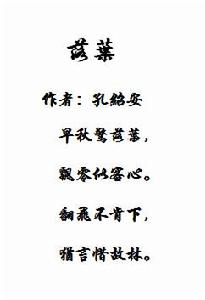 落葉
作者：孔紹安
早秋驚落葉，
飄零似客心。
翻飛不肯下，
猶言惜故林。